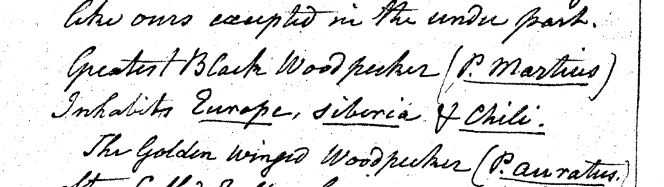 like ours excepted in the under part.
Greatest Black Woodpecker (P. Martius)
Inhabits Europe, Siberia & Chili.
The Golden winged Woodpecker (P. auratus.)